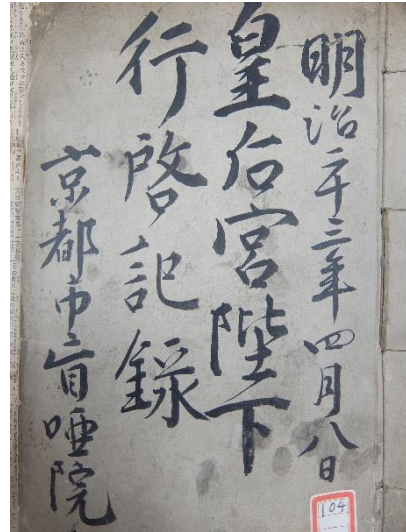 明治二十三年四月八日
皇后宮陛下
行啓記録
京都市盲唖院
104